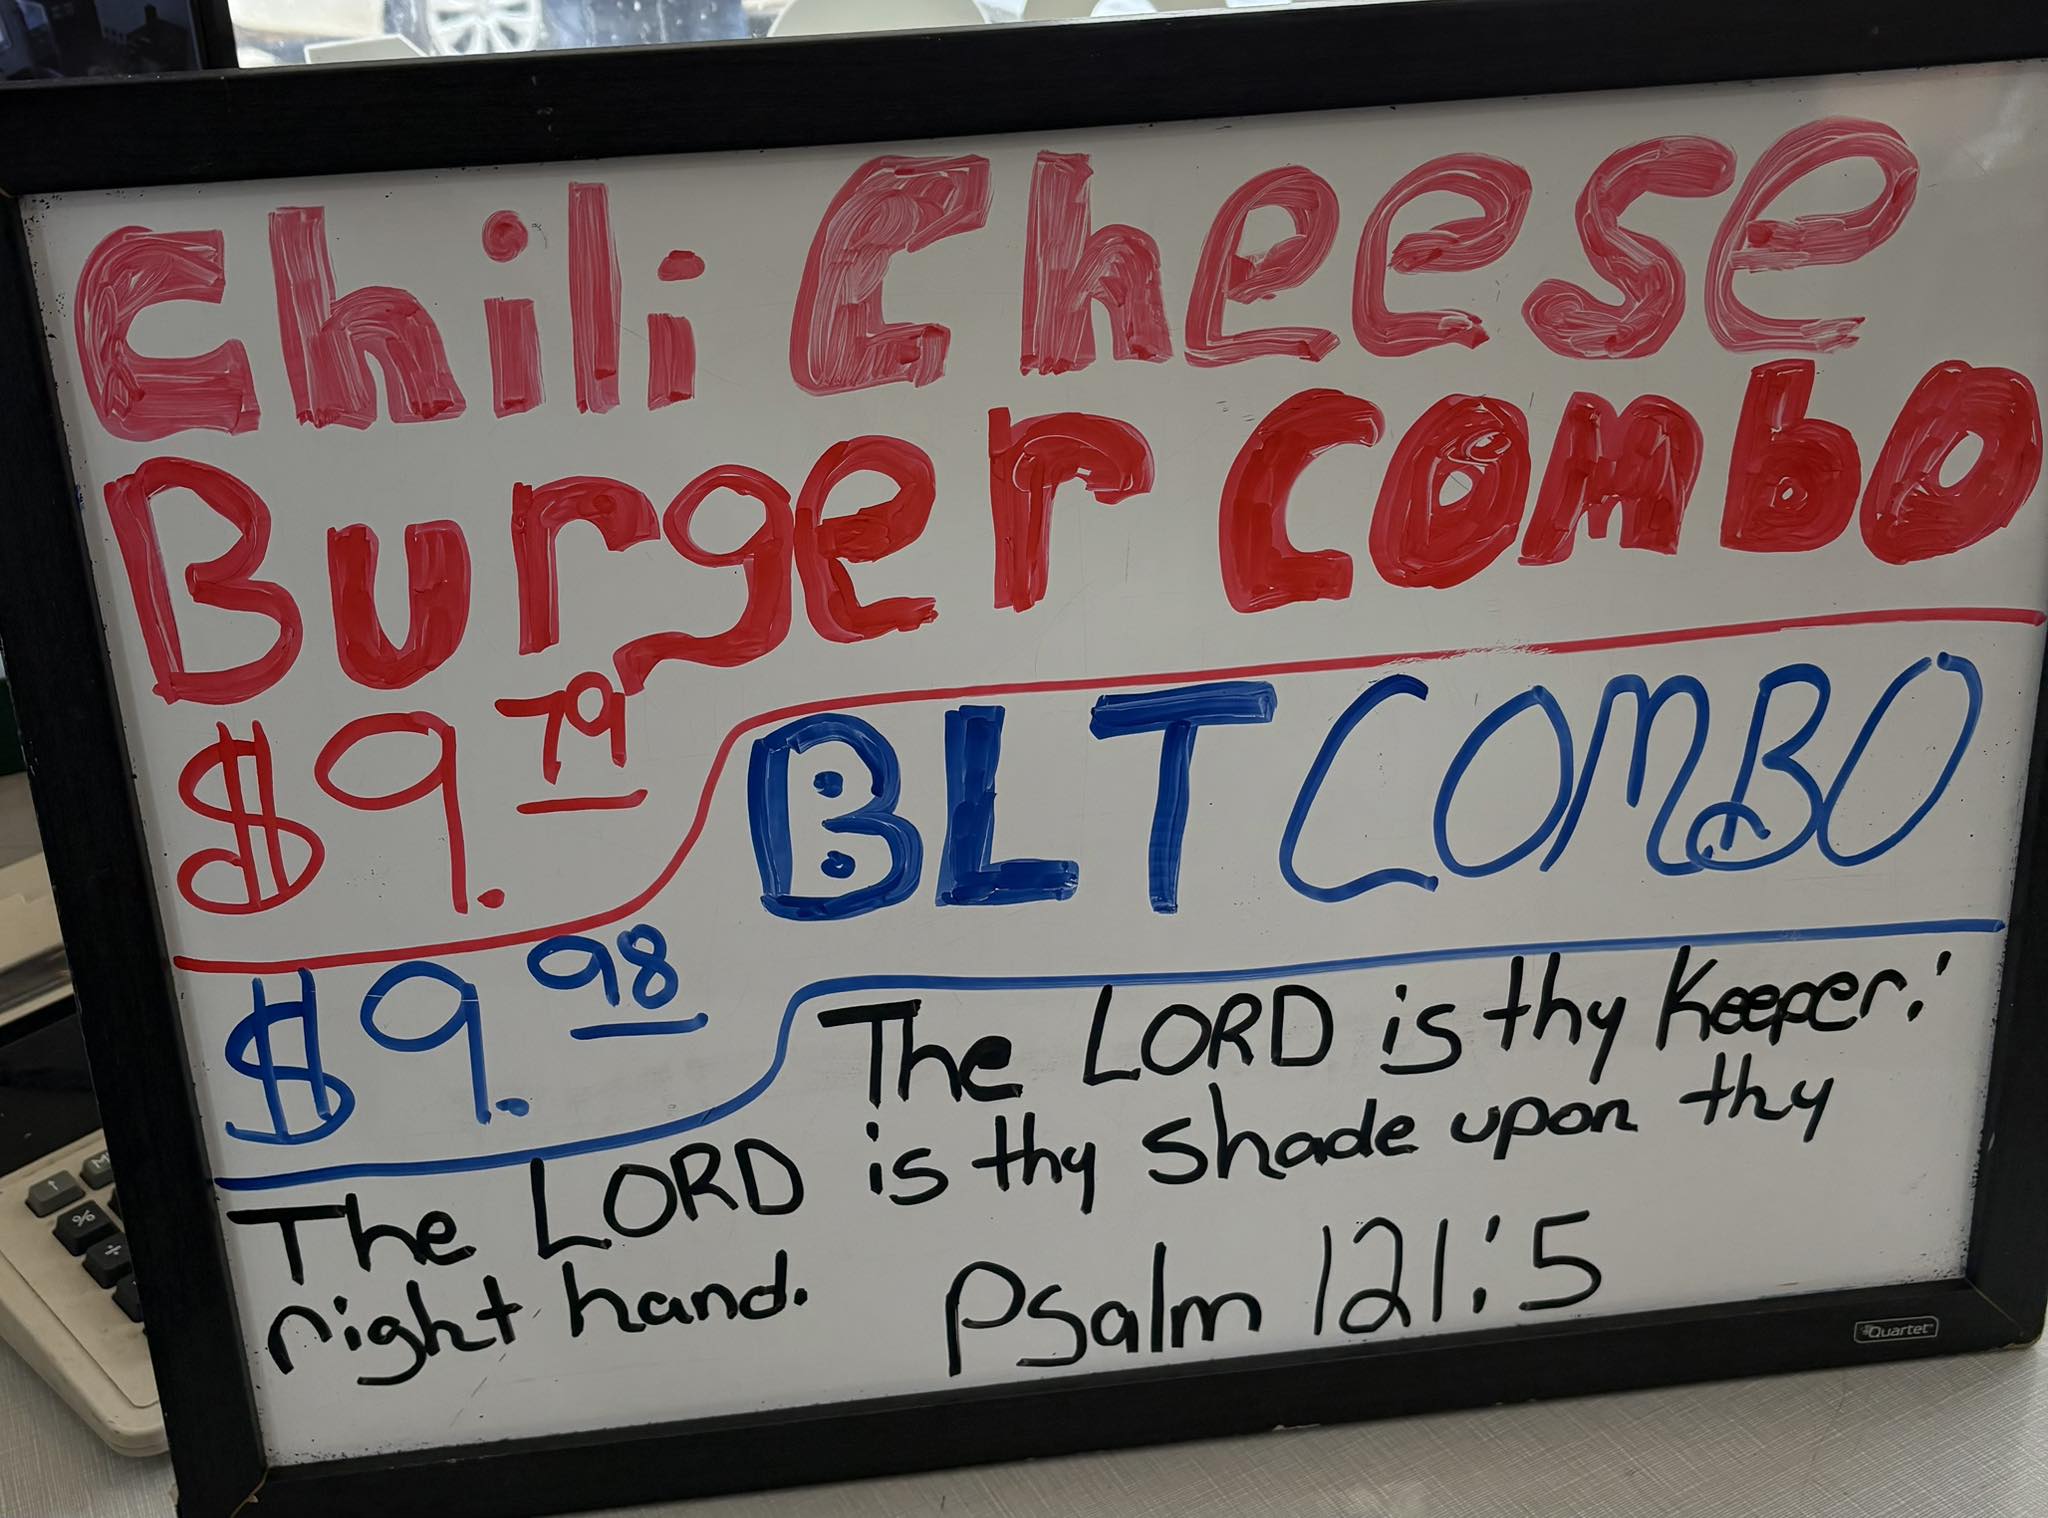 Chili Cheese
Burger Combo
$9.79
BLT COMBO
$9.98
The LORD is thy Keeper:
The LORD is thy shade upon thy
right hand. Psalm 121:5
Quartet
%
÷